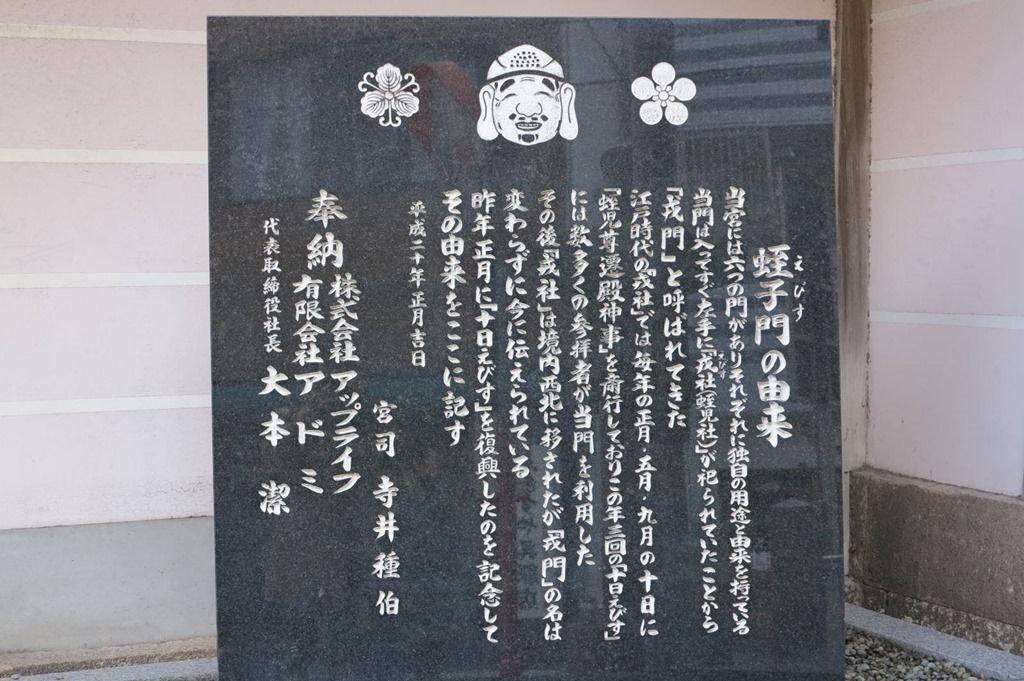 えびす
蛭子門の由来
当宮には六つの門がありそれぞれに独自の用途と由来を持っている
当門は入ってすぐ左手に「戎社(蛭児社)」が祀られていたことから
えびす
「戎門」と呼ばれてきた
江戸時代の「戎社」では毎年の正月・五月・九月の十日に
「蛭児尊遷殿神事」を斎行しておりこの年三回の「十日えびす」
には数多くの参拝者が当門を利用した
その後「戎社」は境内西北に移されたが「戎門」の名は
変わらずに今に伝えられている
昨年正月に「十日えびす」を復興したのを記念して
その由来をここに記す
平成二十年正月吉日
宮司 寺井種伯
奉納 株式会社アップライフ
有限会社アドミ
代表取締役社長 大本潔